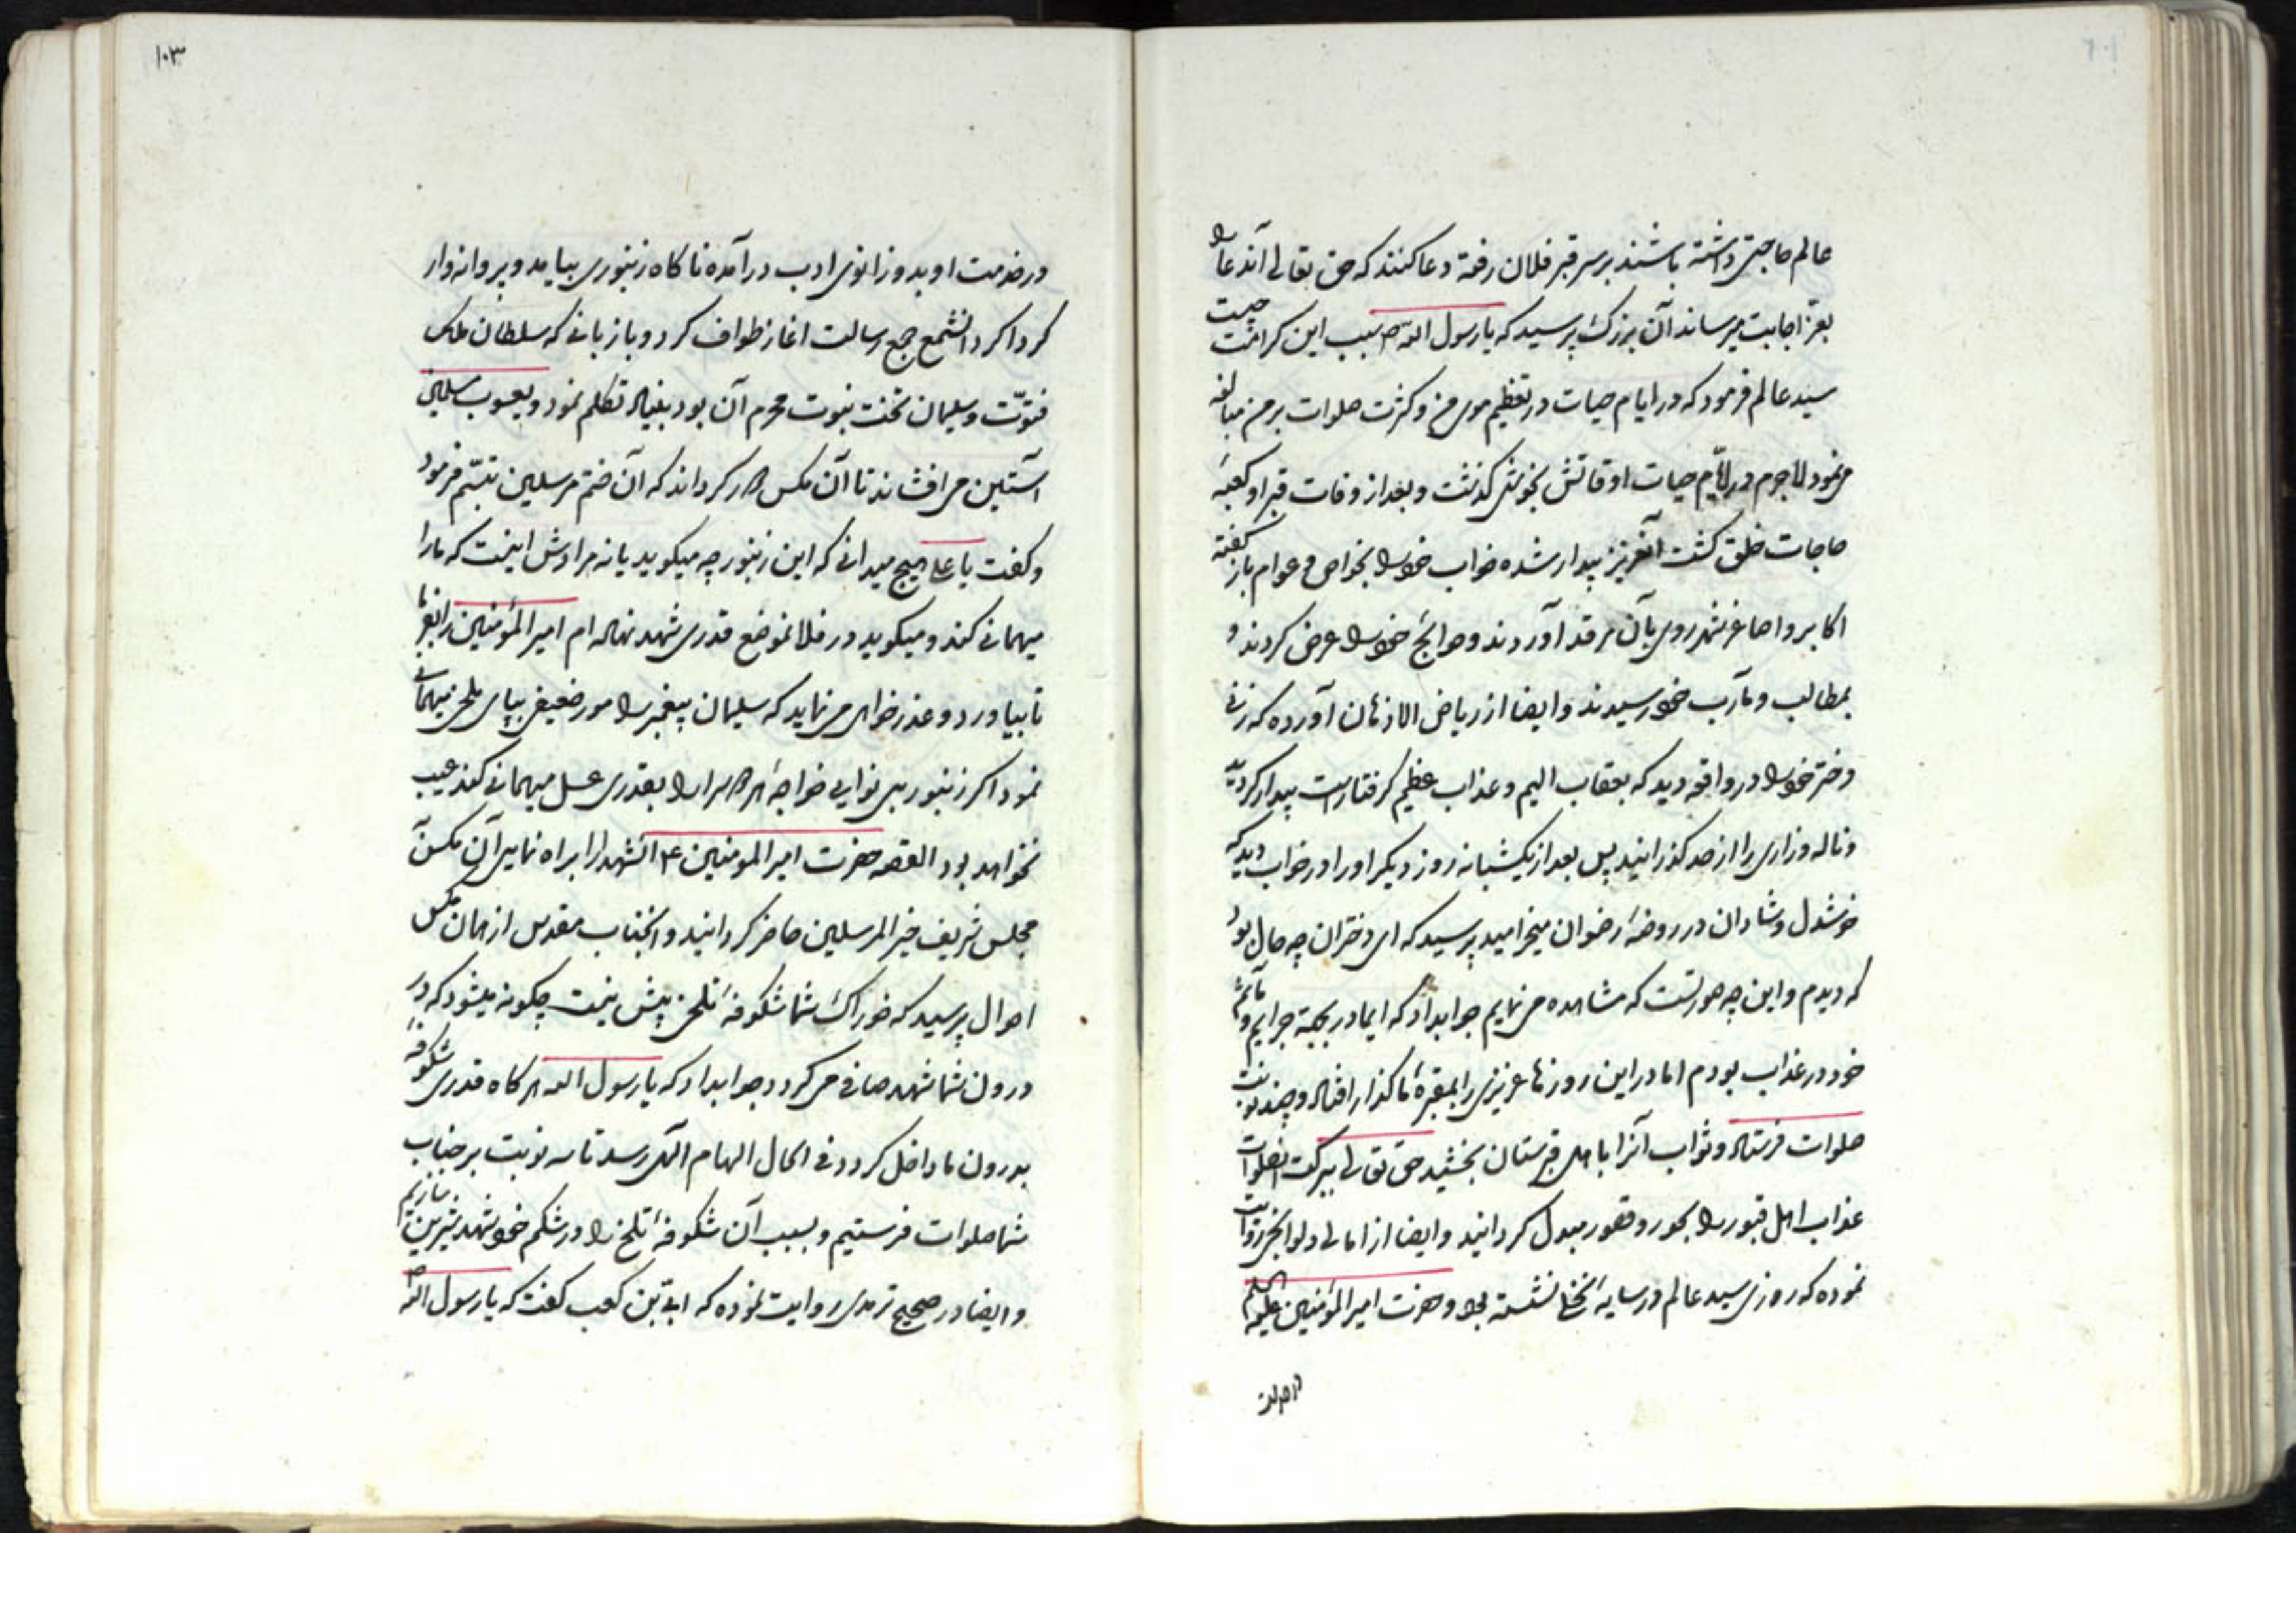 عالم حاجتی داشته باشند بر سر قبر فلان رفته دعا کنند که حق تعالی آندعا را
بعز اجابت میرساند آن بزرک پرسید که یا رسول الله ص سبب این کرامت چیست
سید عالم فرمود که در ایام حیات در تعظیم موی من و کثرت صلوات بر من مبالغه
می نمود لاجرم در ایام حیات اوقاتش بخوشی کذشت و بعد از وفات قبر او کعبهٔ
حاجات خلق کشت آنعزیز بیدار شده خواب خود را بخواص و عوام باز کفته
اکابر و اصاغر شهر روی بآن مرقد آوردند و حوایج خود را عرض کردند و
بمطالب و مآرب خود رسیدند و ایضا از ریاض الاذهان آورده که زنی
دختر خود را در واقعه دید که بعقاب الیم و عذاب عظیم کرفتار است بیدار کردید
و ناله و زاری را از حد کذرانید پس بعد از یکشبانه روز دیکر او را در خواب دید که
خوشدل و شادان در روضهٔ رضوان میخرامید پرسید که ای دختر آن چه حال بود
که دیدم و این چه صورتست که مشاهده می نمایم جوابداد که ایمادر بجهة جرایم و مآثم
خود در عذاب بودم اما در این روزها عزیزی را بمقبرهٔ ما کذار افتاد و چند نوبت
صلوات فرستاد و ثواب آنرا باهل قبرستان بخشید حق تعالی ببرکت آنصلوات
عذاب اهل قبور را بحور و قصور مبدل کردانید و ایضا از امالی ولوالجی روایت
نموده که روزی سید عالم در سایه نخلی نشسته بود و حضرت امیر المؤمنین علیه السلم
در خدمت
۱۰۳
در خدمت او بدو زانوی ادب در آمده ناکاه زنبوری بیامد و پروانه وار
کردا کرد آنشمع جمع رسالت اغاز طواف کرد و با زبانی که سلطان ملک
فتوّت و سلیمان تخت نبوت محرم آن بود بنیاد تکلم نمود و یعسوب مسلمین
آستین می افشاند تا آن مکس را دور کرداند که آن ختم مرسلین تبسّم فرمود
و کفت یا علی هیچ میدانی که این زنبور چه میکوید یا نه مرادش اینست که ما را
میهمانی کند و میکوید در فلانموضع قدری شهد نهاده ام امیر المؤمنین را بفرما
تا بیاورد و عذر خواهی می نماید که سلیمان پیغمبر را مور ضعیفی بپای ملخی میهمانی
نمود اکر زنبور بی نوایی خواجهٔ هر دو سرا را بقدری عسل میهمانی کند عیب
نخواهد بود القصه حضرت امیر المومنین ع آنشهد را براه نمایی آن مکس
مجلس شریف خیر المرسلین حاضر کردانید و آنجناب مقدس از همان مکس
احوال پرسید که خوراک شما شکوفهٔ تلخی بیش نیست چکونه میشود که در
درون شما شهد صافی می کردد جوابداد که یا رسول الله هر کاه قدری شکوفه
بدرون ما داخل کردد فی الحال الهام الهی رسد تا سه نوبت بر جناب
شما صلوات فرستیم و بسبب آن شکوفهٔ تلخ را در شکم خود شهد شیرین سازیم
و ایضا در صحیح ترمدی روایت نموده که ابی بن کعب کفت که یا رسول الله ص